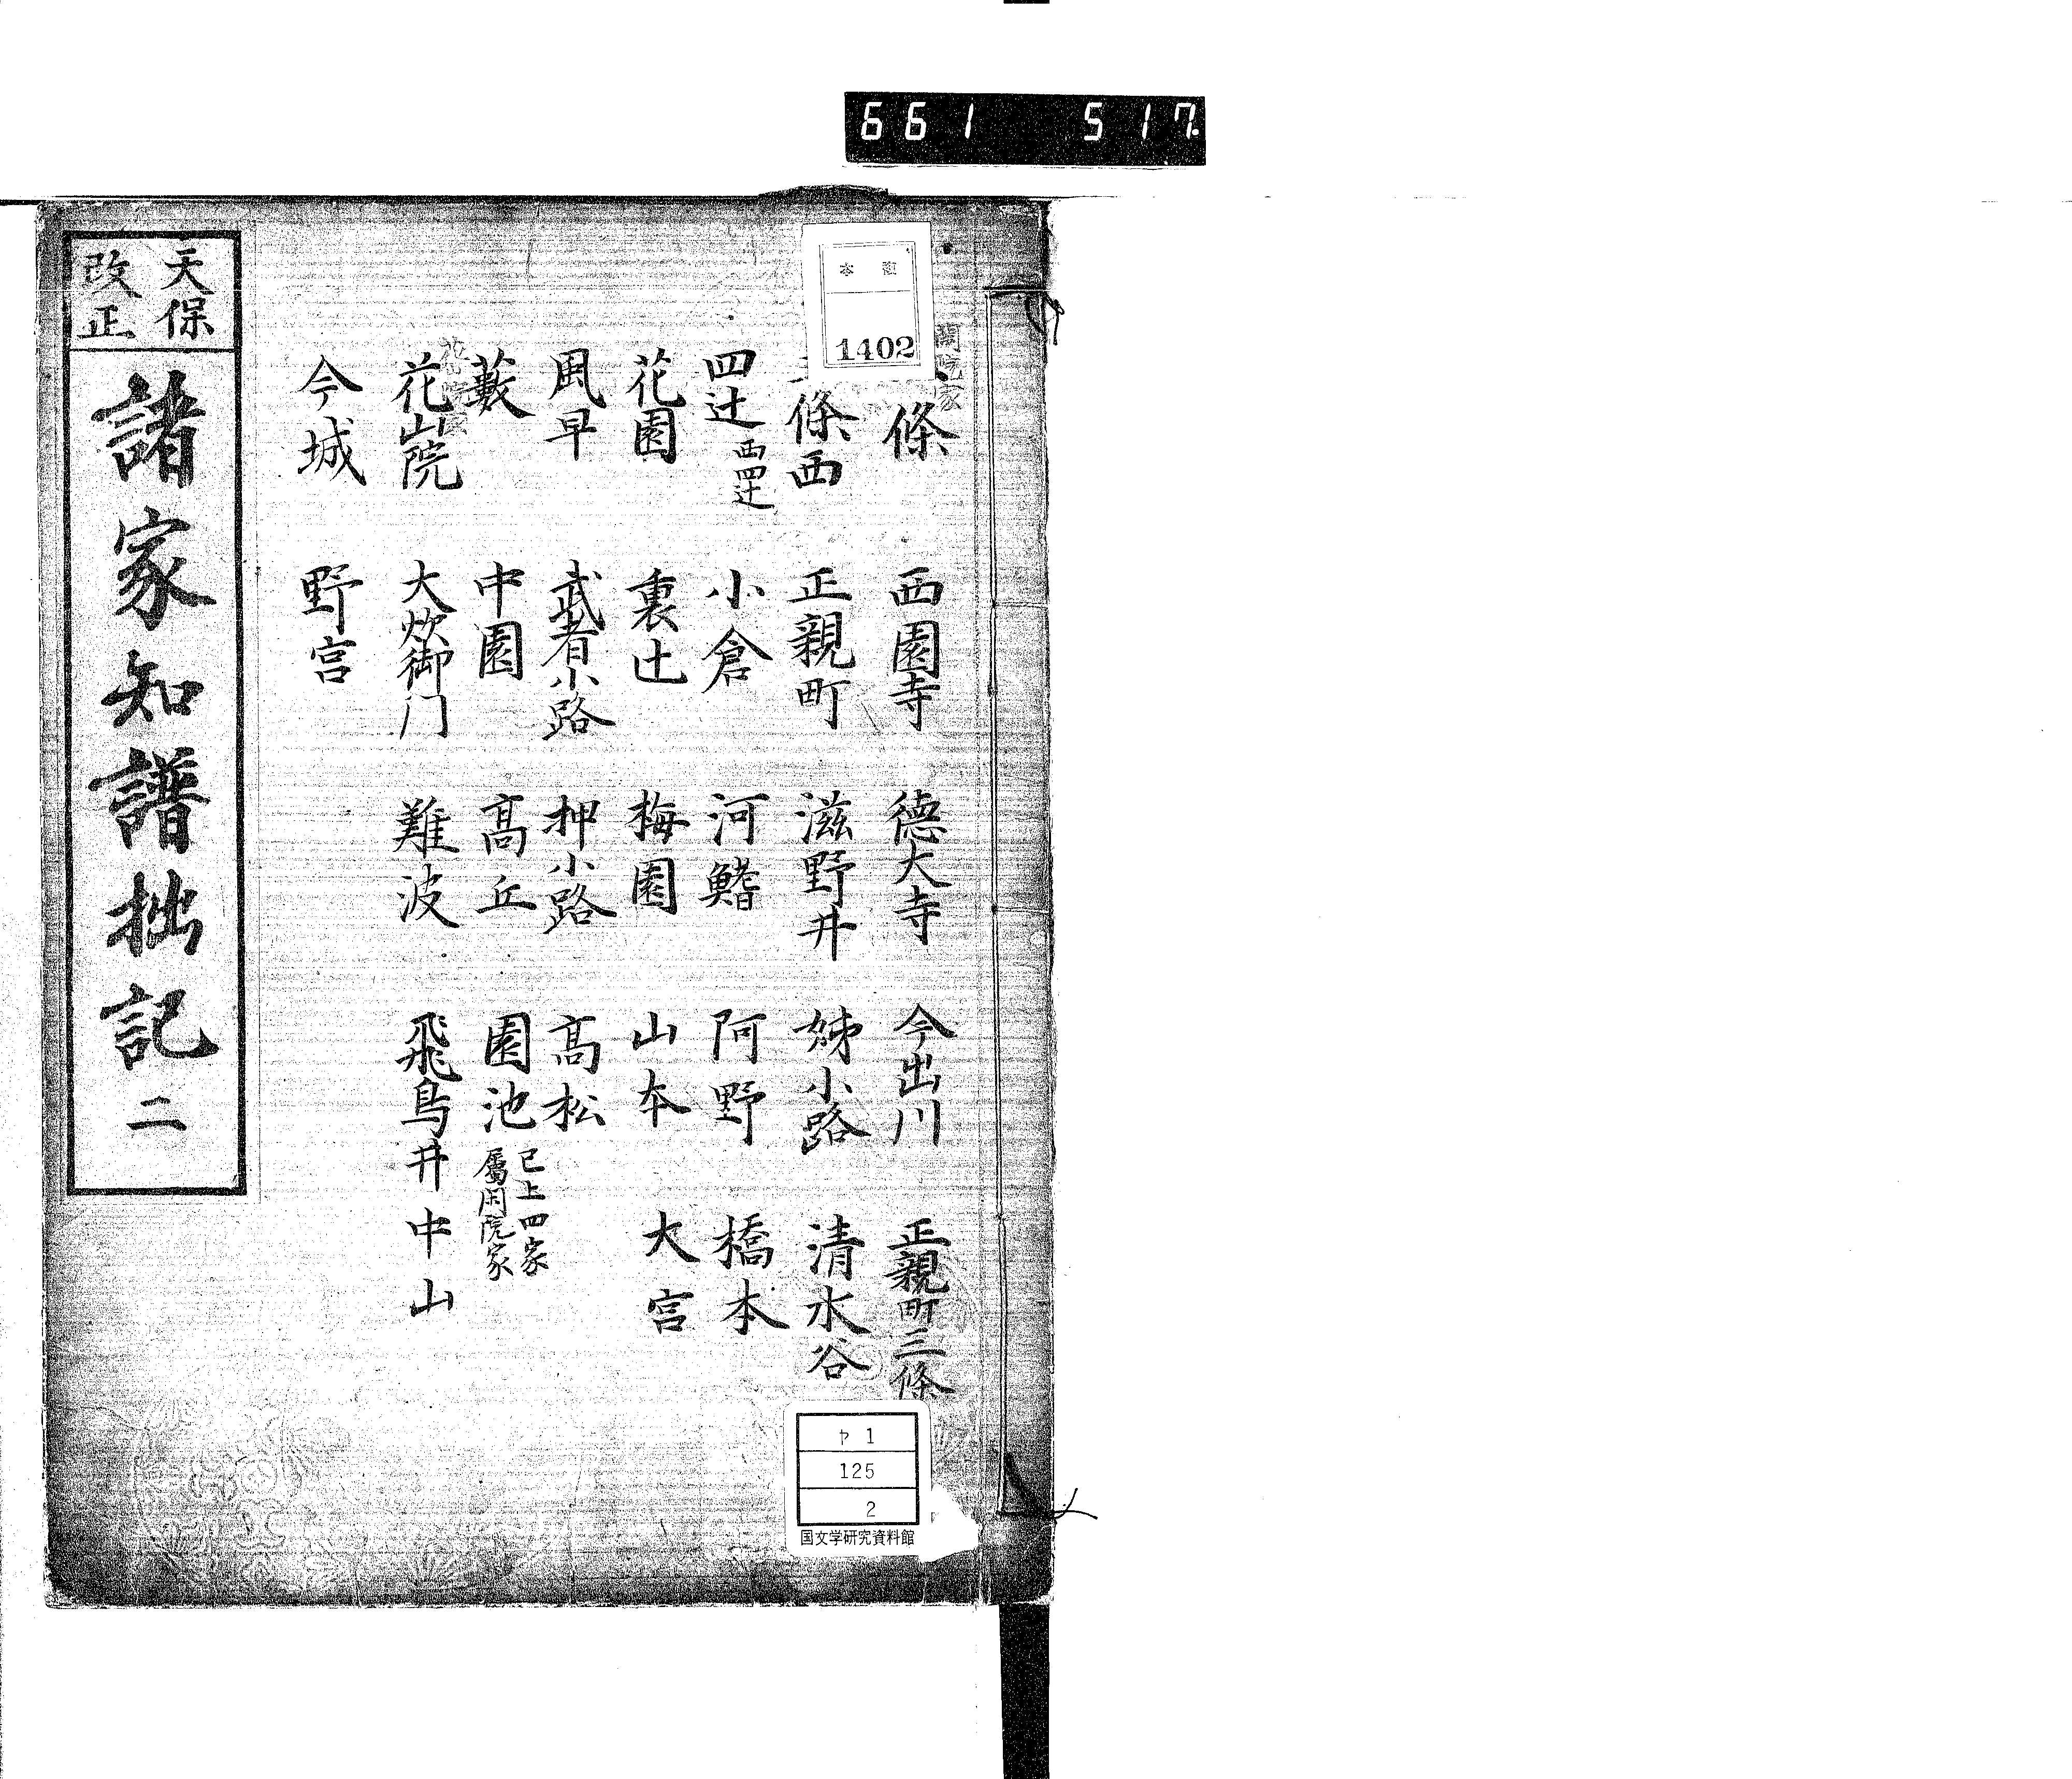 661 517.
閑院家
條 西園寺 德大寺 今出川 正親町三條
條西 正親町 滋野井 姊小路 清水谷
四辻 西四辻 小倉 河鰭 阿野 橋本
花園 裏辻 梅園 山本 大宮
風早 武者小路 押小路 髙松
藪 中園 髙丘 園池 已上四家
屬閑院家
花山院 大炊御门 難波 飛鳥井 中山
今城 野宮
天保
改正
諸家知譜拙記 二
1402
ヤ 1
125
2
国文学研究資料館